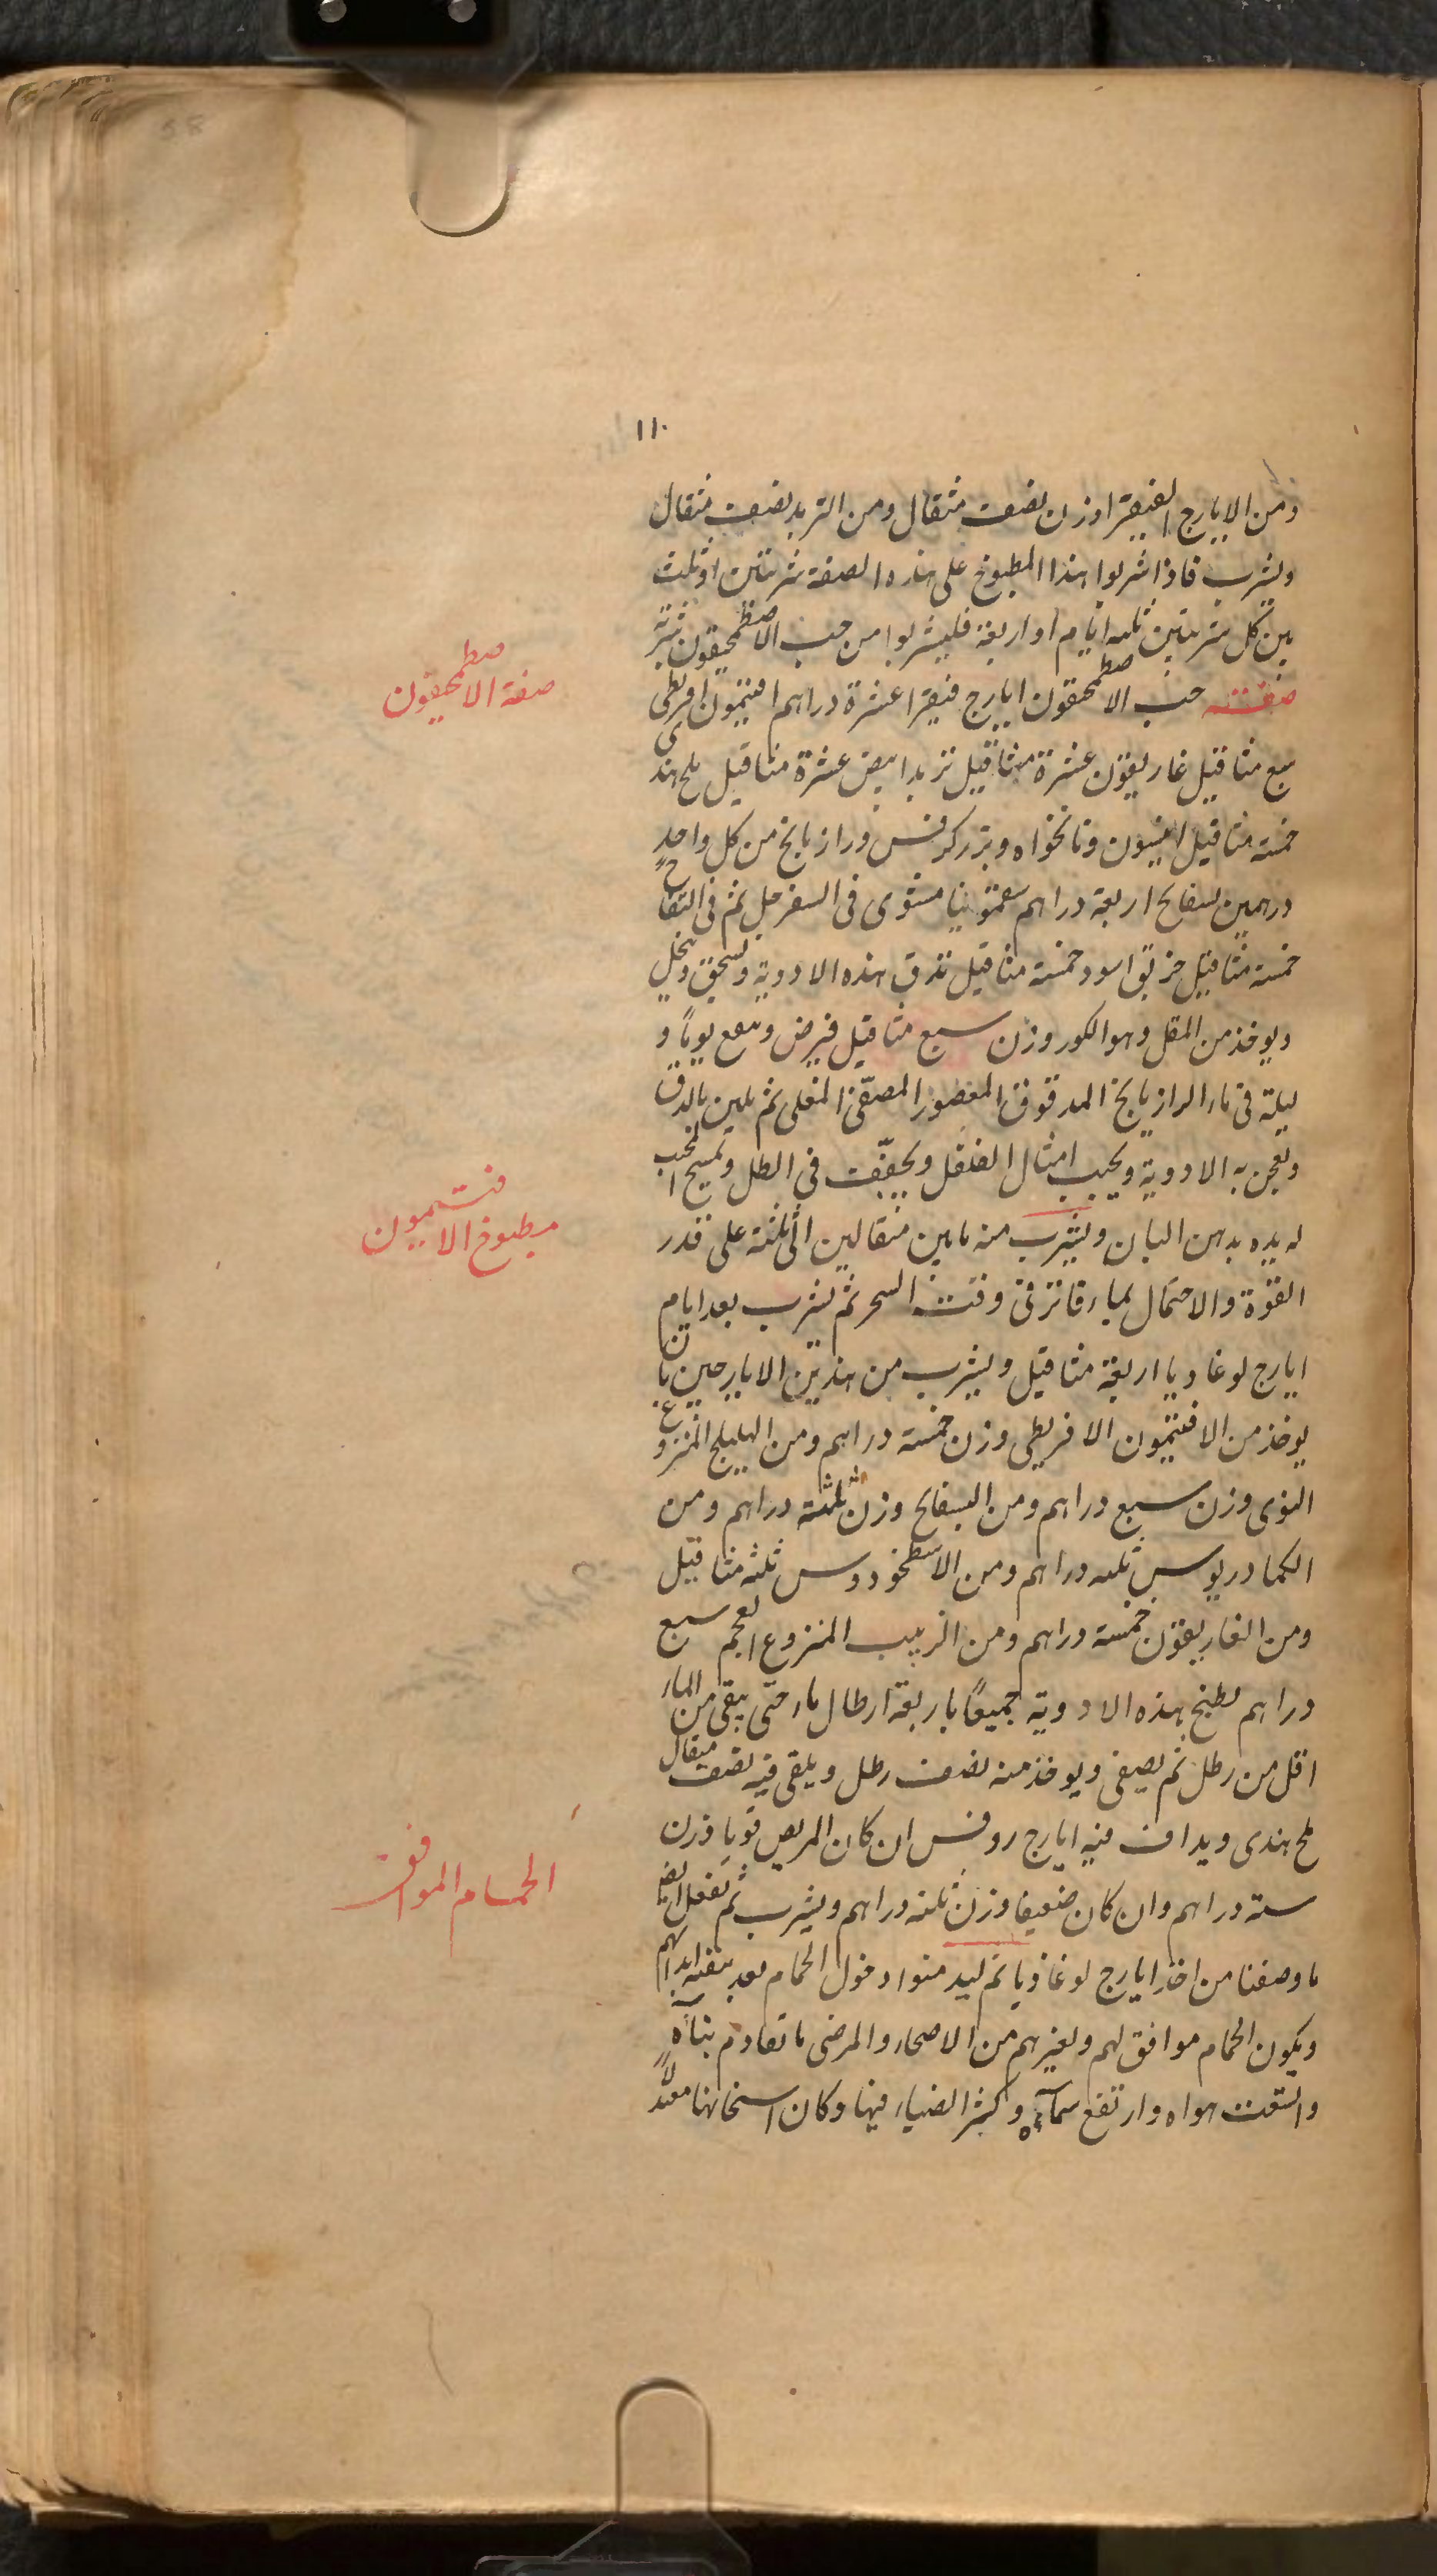 ١١٠
ومن الايارج الفيقرا وزن نصف مثقال ومن التربد نصف مثقال
ويشرب فاذا شربوا هذا المطبوخ على هذه الصفة شربتين او ثلث
بين كل شربتين ثلثه ايام او اربعة فليشربوا من حب الاصطمحيقون شربة
صفته حب الاصطمحقون ايارج فيقرا عشرة دراهم افتيمون اقريطى
سبع مثاقيل غاريقون عشرة مثاقيل تربد ابيض عشرة مثاقيل ملح هندى
خمسة مثاقيل انيسون ونانخواه وبزر كرفس ورازيانج من كل واحد
درهمين بسفايج اربعة دراهم سقمونيا مشوى فى السفرجل ثم فى التفاح
خمسة مثاقيل خربق اسود خمسة مثاقيل تدق هذه الادوية وتسحق وتنخل
ويوخذ من المقل وهو الكور وزن سبع مثاقيل فيرض وينقع يوماً و
ليلة فى ماء الرازيانج المدقوق المعصور المصفّى المغلى ثم يلين بالدق
وتعجن به الادوية ويحبب امثال الفلفل ويجفّف فى الظل وتمسح المحبب
له يده بدهن البان ويشرب منه مابين مثقالين الى ثلثة على قدر
القوة والاحتمال بماء فاتر فى وقت السحر ثم يشرب بعد ايام
ايارج لوغاديا اربعة مثاقيل ويشرب من هذين الايارجين بان
يوخذ من الافتيمون الاقريطى وزن خمسة دراهم ومن الهليلج المنزوع
النوى وزن سبع دراهم ومن البسفايج وزن ثلثة دراهم ومن
الكمادريوس ثلثه دراهم ومن الاسطخودوس ثلثه مثاقيل
ومن الغاريقون خمسة دراهم ومن الزبيب المنزوع العجم سبع
دراهم يطبخ بهذه الادوية جميعاً باربعة ارطال ماء حتى يبقى من الماء
اقل من رطل ثم يصفى ويوخذ منه نصف رطل ويلقى فيه نصف مثقال
ملح هندى ويداف فيه ايارج روفس ان كان المريض قويا وزن
ستة دراهم وان كان ضعيفا وزن ثلثه دراهم ويشرب ثم تفعل ايضا
ما وصفنا من اخذ ايارج لوغاذيا ثم ليدمنوا دخول الحمام بعد تنقية ابدانهم
ويكون الحمام موافق لهم ولغيرهم من الاصحاء والمرضى ما تقادم بناءه
واتسعت هواه وارتفع سماءه وكثر الضياء فيها وكان اسخانها معتدلاً
صفة الاصطمحيقون
مطبوخ الافتيمون
الحمام الموافق